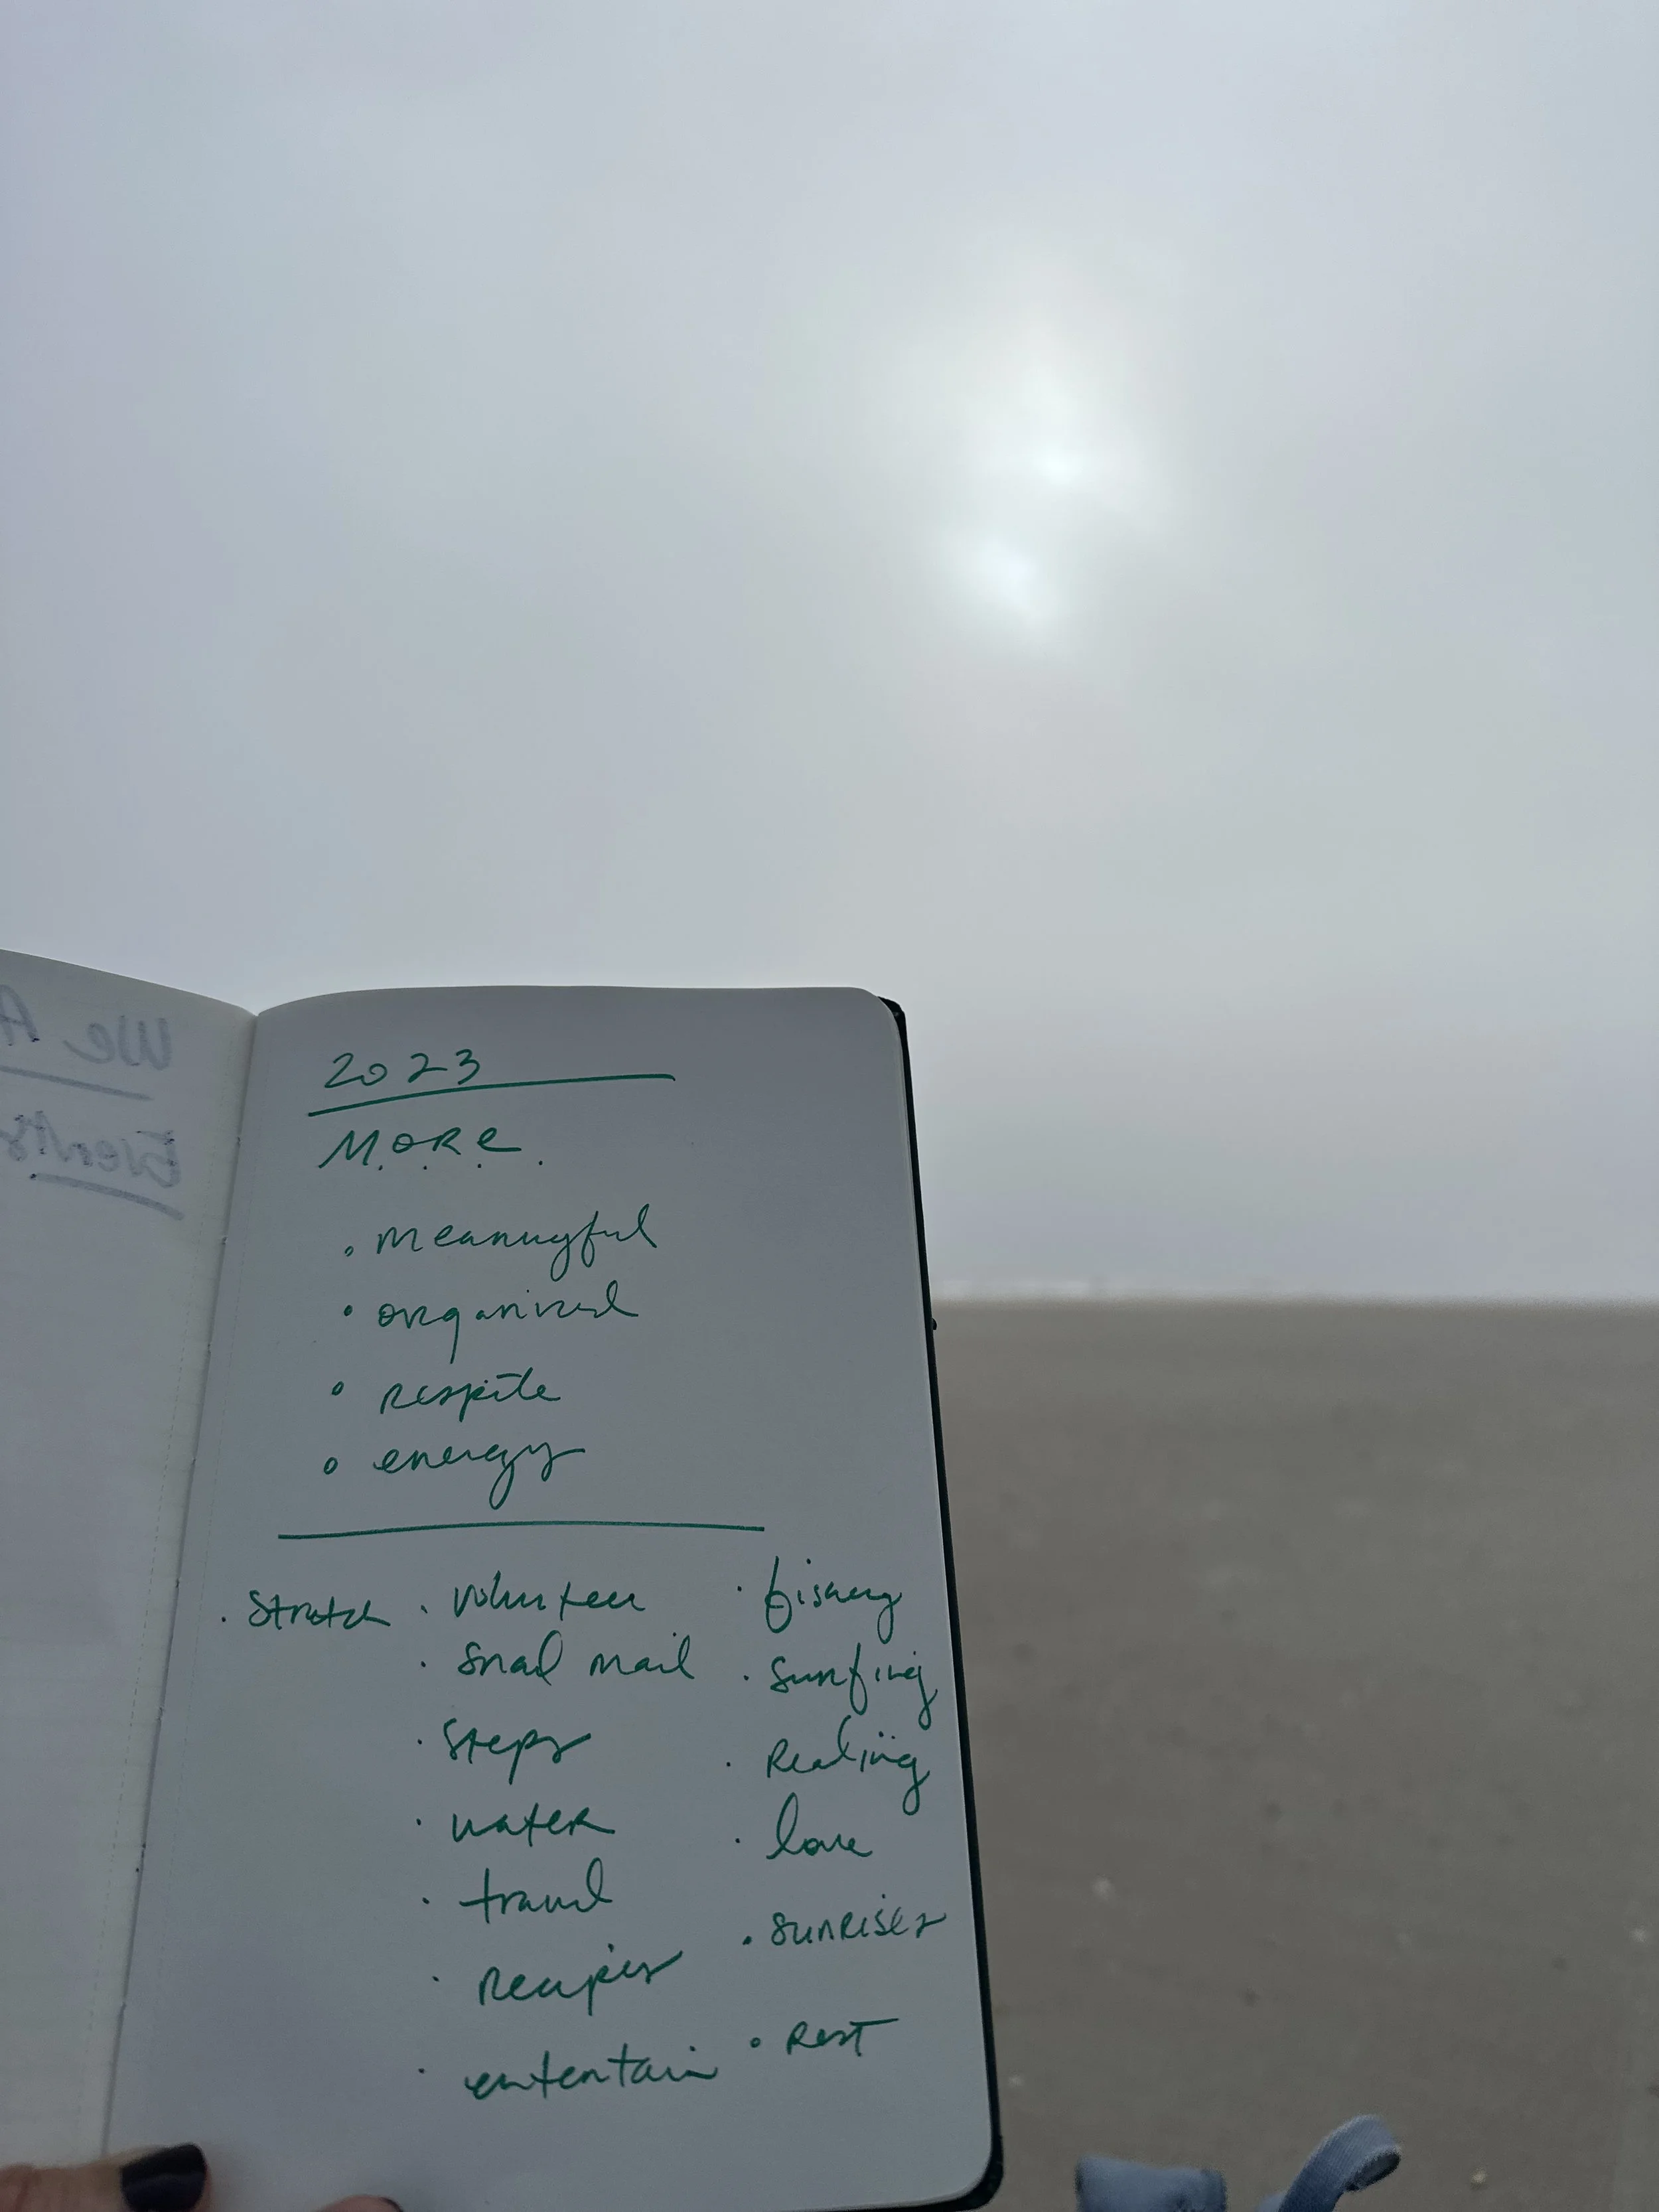 We A
Events
2023
M.O.R.e.
• meaningful
• organized
• respite
• energy
• Stretch
• volunteer
• snail mail
• steps
• water
• travel
• recipes
• entertain
• fishing
• surfing
• Reading
• love
• sunrises
• Rest